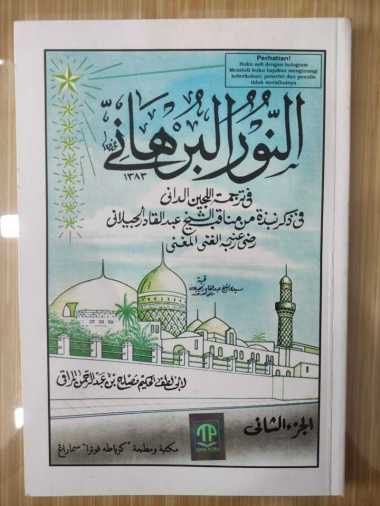 Perhatian!
Buku asli dengan hologram
Membeli buku bajakan mengurangi
keberkahan, penerbit dan penulis
tidak meridhoinya
النُّورُ البُرْهَانِي
١٣٨٣
في ترجمة اللجين الداني
في ذكر نبذة من مناقب الشيخ عبد القادر الجيلاني
رضي عنه ربه الغني المغني
قبة
لابى لطف الحكيم مصلح بن عبد الرحمن المراقى
الجزء الثانى
مكتبة ومطبعة "كرياطه فوترا" سماراغ